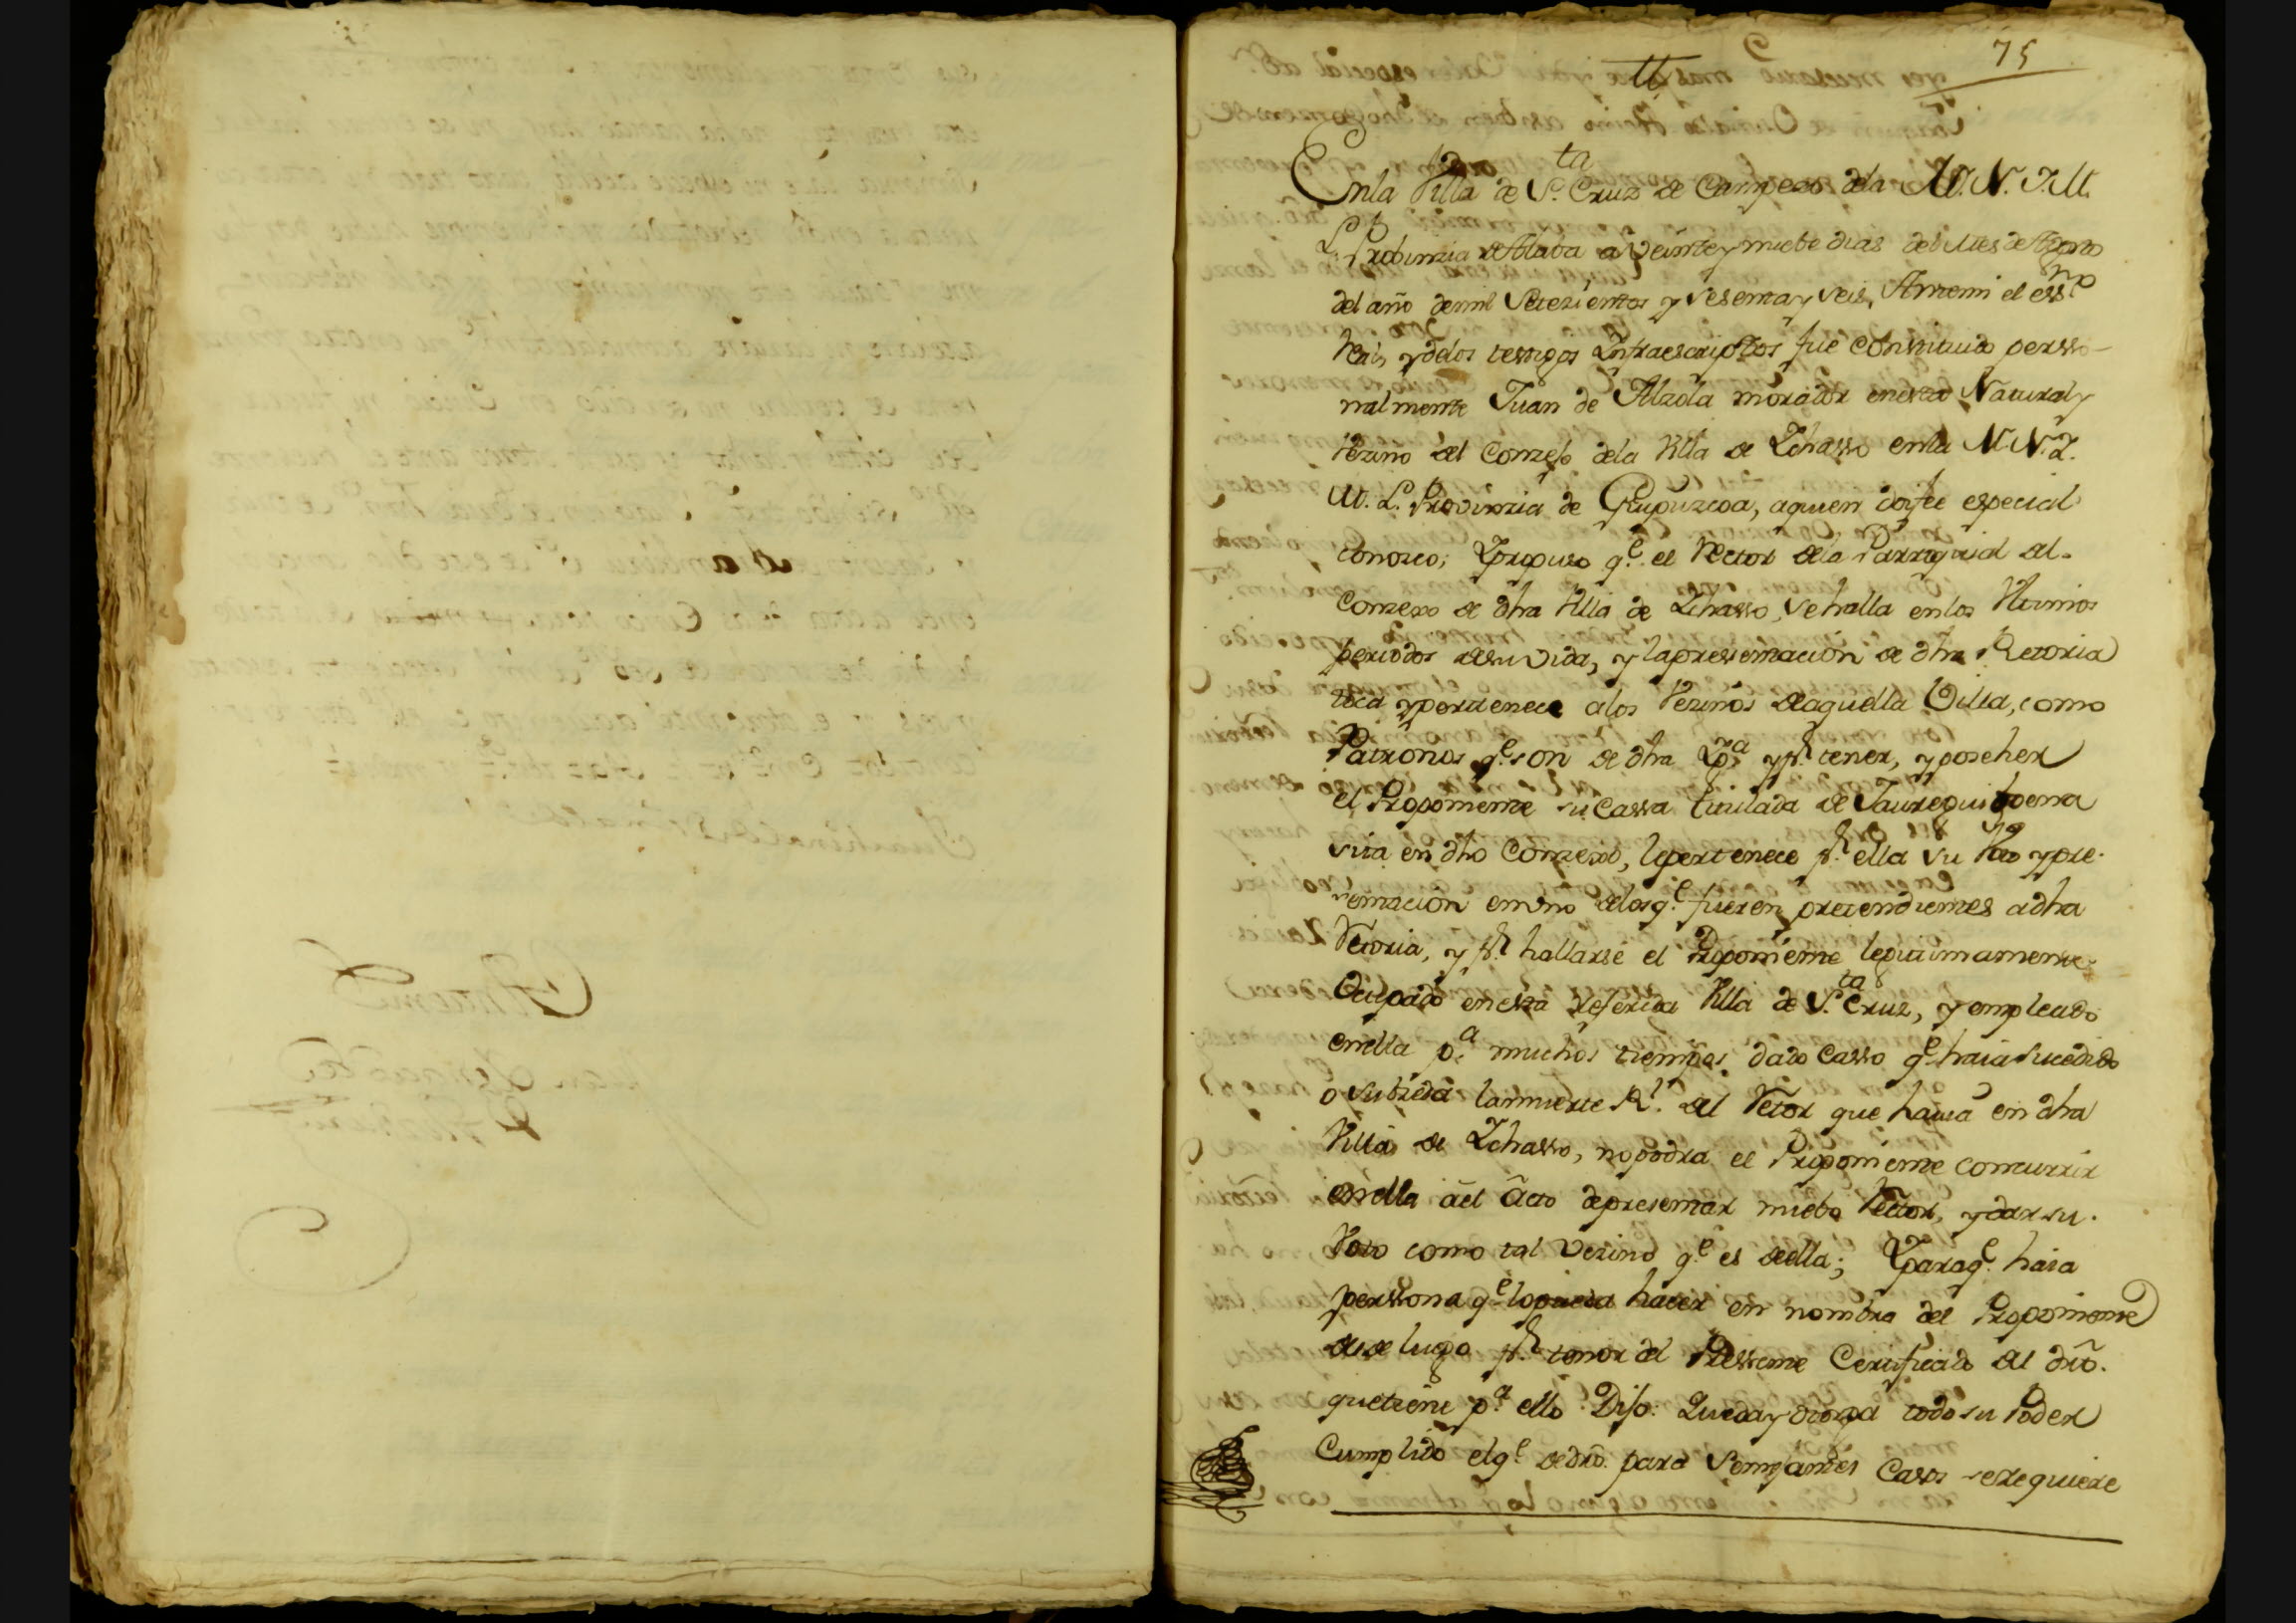 75
En la Villa de S.ta Cruz de Campezo dela M. N. Y M.
L. Probinzia de Alaba a veinte y nuebe dias del Mes de Agosto
del año de mil Setezientos y sesenta y seis, Antemi el ess.no
Real, y delos testigos Ynfraescriptos fue constituido perso-
nalmente Juan de Alzola morador en esta Natural y
Vezino del Conzejo dela Villa de Ychasso enla M. N. Y.
M. L. Provinzia de Guipuzcoa, aquien doy fee especial
conozco; Ypropuso q.e el Rector dela Parroquial del
Conzejo de dha Villa de Ychasso, se halla en los Vltimos
periodos de su vida, y la presentacion de dha Retoria
toca y pertenece alos Vezinos de aquella Villa, como
Patronos q.e son de dha Yg.a y p.r tener, y poseher
el Proponiente su Cassa titulada de Jaureguiberria
sita en dho Conzejo, le pertenece p.r ella su Voto y pre-
sentacion en uno delos q.e fueren pretendientes adha
Retoria, y p.r hallarse el Proponiente legitimamente
Ocupado en esta referida Villa de S.ta Cruz, y empleado
en ella p.a muchos tiempos, dado Casso q.e haia sucedido
o subzeda la muerte R.l del Retor que havia en dha
Villa de Ychasso, no podra el Proponiente concurrir
en ella ãel Acto de presentar nuebo Retor, y dar su
Voto como tal Vezino q.e es de ella; Y para q.e haia
perssona q.e lo pueda hacer en nombre del Proponiente
desde luego p.r tenor del Pressente Certificado del dro.
que tiene p.a ello Dijo: Que da y otorga todo su Poder
Cumplido el q.e de dro. para Semejantes Casos se requiere